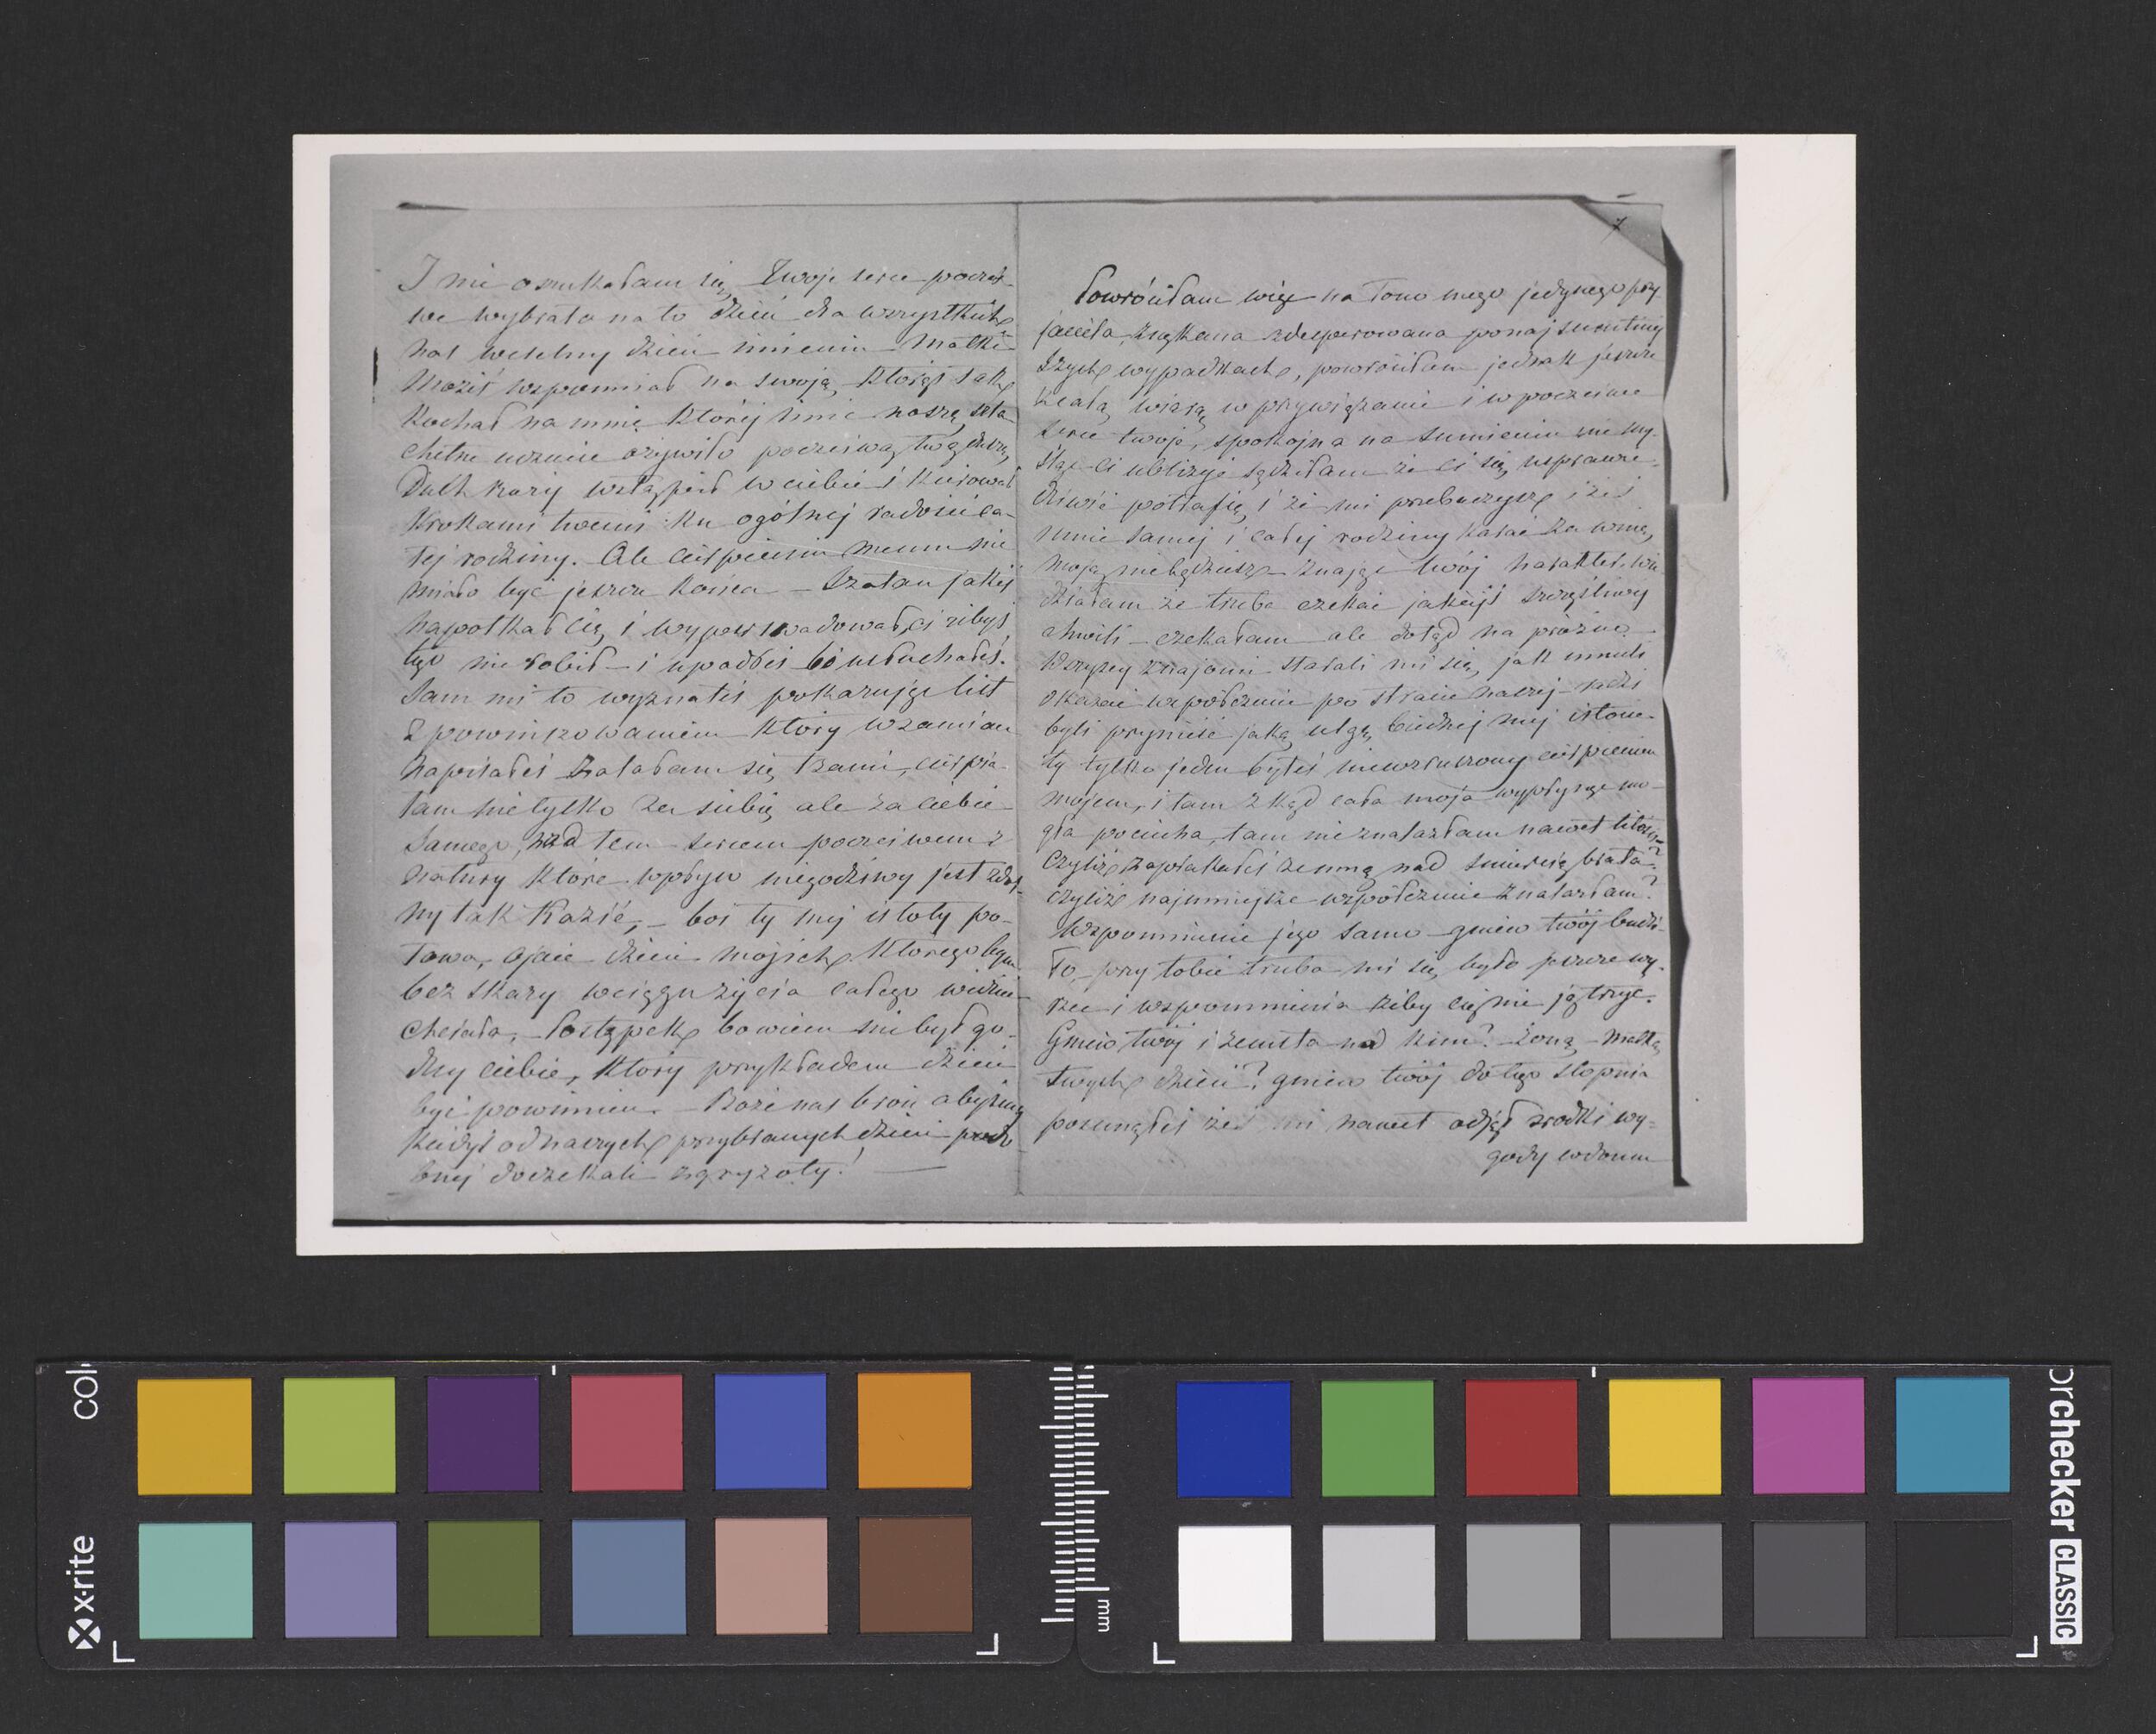 I nie oszukałam się, Twoje serce poczci-
we wybrało na to dzień dla wszystkich
nas weselny dzień imienin Matki-
Możeś wspomniał na swoją, którąś tak
kochał na mnie której imie noszę, szla-
chetne uczucie ożywiło poczciwą twą duszę,
Duch Boży wstąpił w ciebie i kierował
krokami twemi ku ogólnej radości ca-
łej rodziny. Ale cierpieniu memu nie
miało być jeszcze końca – Szatan jakiś
napotkał cię, i wyperswadował ci żebyś
tego nie robił – i upadłeś boś usłuchałeś.
Sam mi to wyznałeś pokazując list
z powinszowaniem który wzamian
napisałeś Zalałam się łzami, cierpia-
łam nietylko za siebie ale za ciebie
samego, nad tem sercem poczciwem z
natury które wpływ niegodziwy jest zdol-
ny tak kazić, – boś ty mej istoty po-
łowa, ojcie dzieci mojich, którego bym
bez skazy wciągu życia całego widzieć
chciała, – Postępek bowiem nie był go-
dny ciebie, który przykładem dzieci
być powinien. – Boże nas broń abyśmy
kiedyś od naszych przybranych dzieci podo
bnej doczekali zgryzoty! —
7
Powróciłam więc na łono mego jedynego przy-
jaciela, znękana zdesperowana po najsmutniej
szych wypadkach, powróciłam jednak jeszcze
z całą wiarą w przywiązanie i w poczciwe
serce twoje, spokojna na sumieniu nie my-
śląc ci ubliżyć sądziłam że ci się usprawie-
dliwić potrafię, i że mi przebaczysz i żeś
mnie samej i całej rodziny karać za winę,
moją niebędziesz – Znając twój harakter wie-
działam że trzeba czekać jakiejś szczęśliwej
chwili – czekałam ale dotąd na próżno –
Wszyscy znajomi starali mi się, jak umieli
okazać współczucie po stracie naszej – radzi
byli przynieść jaką ulgę, biednej mej istocie
ty tylko jeden byłeś niewzruszony cierpieniem
mojem, i tam zkąd cała moja wypłynąć mo-
gła pociecha, tam nie znalazłam nawet litości
Czyliż zapłakałeś zemną nad śmiercią brata?
czyliż najmniejsze współczucie znalazłam?
Wspomnienie jego samo – gniew twój budzi-
ło, przy tobie trzeba mi się było jeszcze wy-
rzec i wspomnienia żeby cię nie jątrzyć.
Gniew twój i zemsta nad kim? – Żoną – Matką,
twych dzieci? gniew twój do tego stopnia
posunąłeś żeś mi nawet odjął środki wy-
gody w domu
x-rite
colorchecker CLASSIC
mm